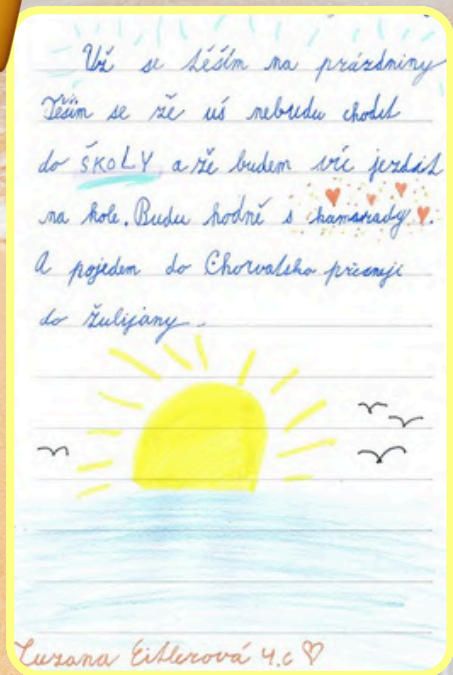 Už se těším na prázdniny
Těším se že uš nebudu chodit
do ŠKOLY a že budem víc jezdit
na kole. Budu hodně s kamarády.
A pojedem do Chorvatska přesněji
do Žulijany.
Zuzana Eitlerová 4.c